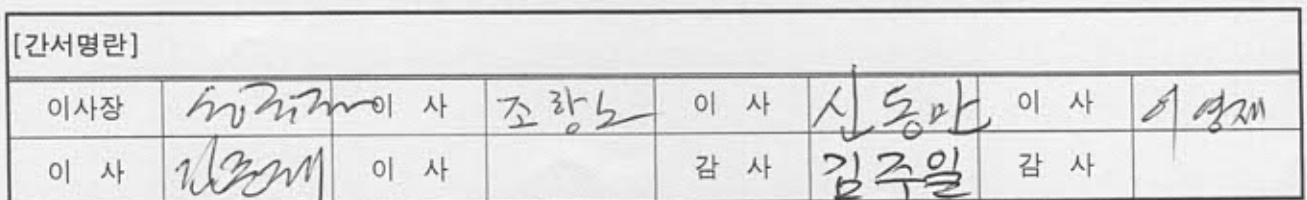 [간서명란]
이사장 이 사 조항노 이 사 신동만 이 사 이영재
이 사 이 사 감 사 김주일 감 사